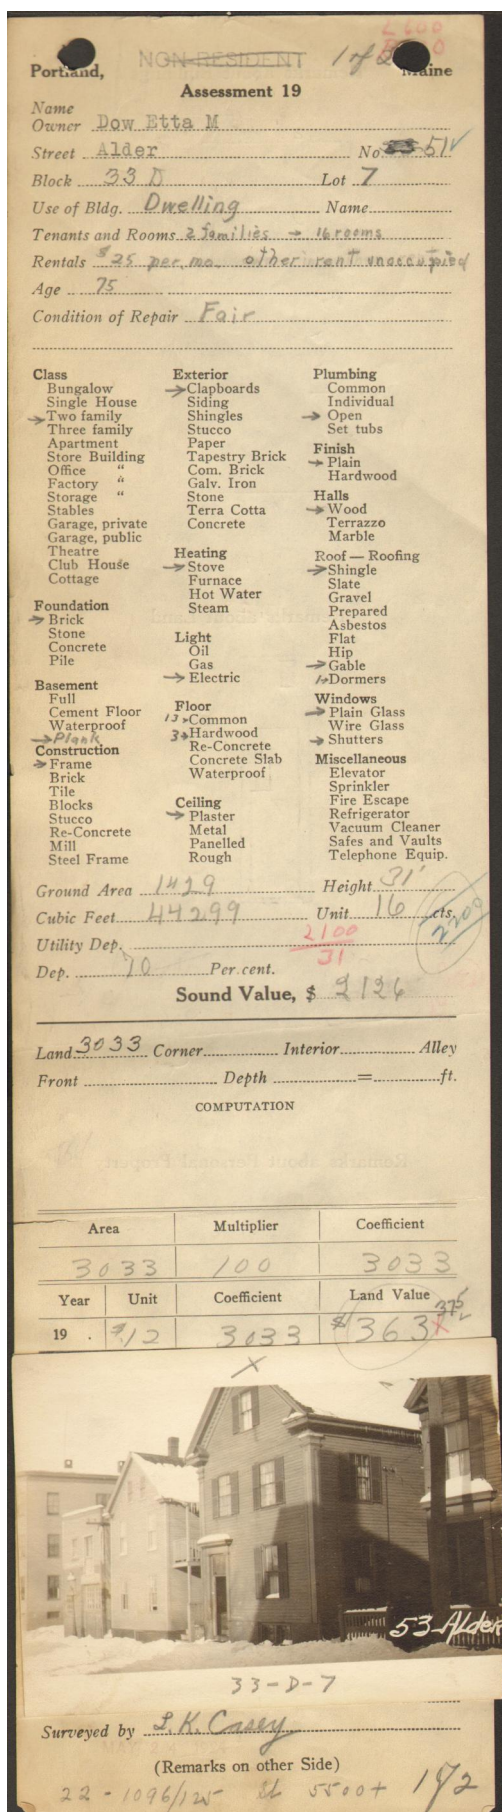 L600
NON-RESIDENT 1 of 2
Portland, Maine
Assessment 19
Name
Owner Dow Etta M
Street Alder No. 51 ✓
Block 33 D Lot 7
Use of Bldg. Dwelling Name
Tenants and Rooms 2 families → 16 rooms
Rentals $25 per mo. other rent unoccupied
Age 75
Condition of Repair Fair
Class
Bungalow
Single House
→ Two family
Three family
Apartment
Store Building
Office "
Factory "
Storage "
Stables
Garage, private
Garage, public
Theatre
Club House
Cottage
Foundation
→ Brick
Stone
Concrete
Pile
Basement
Full
Cement Floor
Waterproof
→ Plank
Construction
→ Frame
Brick
Tile
Blocks
Stucco
Re-Concrete
Mill
Steel Frame
Exterior
→ Clapboards
Siding
Shingles
Stucco
Paper
Tapestry Brick
Com. Brick
Galv. Iron
Stone
Terra Cotta
Concrete
Heating
→ Stove
Furnace
Hot Water
Steam
Light
Oil
Gas
→ Electric
Floor
13 → Common
3 → Hardwood
Re-Concrete
Concrete Slab
Waterproof
Ceiling
→ Plaster
Metal
Panelled
Rough
Plumbing
Common
Individual
→ Open
Set tubs
Finish
→ Plain
Hardwood
Halls
→ Wood
Terrazzo
Marble
Roof — Roofing
→ Shingle
Slate
Gravel
Prepared
Asbestos
Flat
Hip
→ Gable
1→ Dormers
Windows
→ Plain Glass
Wire Glass
→ Shutters
Miscellaneous
Elevator
Sprinkler
Fire Escape
Refrigerator
Vacuum Cleaner
Safes and Vaults
Telephone Equip.
Ground Area 1429 Height 31'
Cubic Feet 44299 Unit 16 cts.
2200
Utility Dep. 2100
31
Dep. 70 Per cent.
Sound Value, $ 2126
Land 3033 Corner Interior Alley
Front Depth = ft.
COMPUTATION
Area Multiplier Coefficient
3033 100 3033
Year Unit Coefficient Land Value
19 . $.12 3033 $363 X 375
X
53-Alder
33-D-7
Surveyed by L.K. Casey
(Remarks on other Side)
22 - 1096/125 5500+ 1 of 2